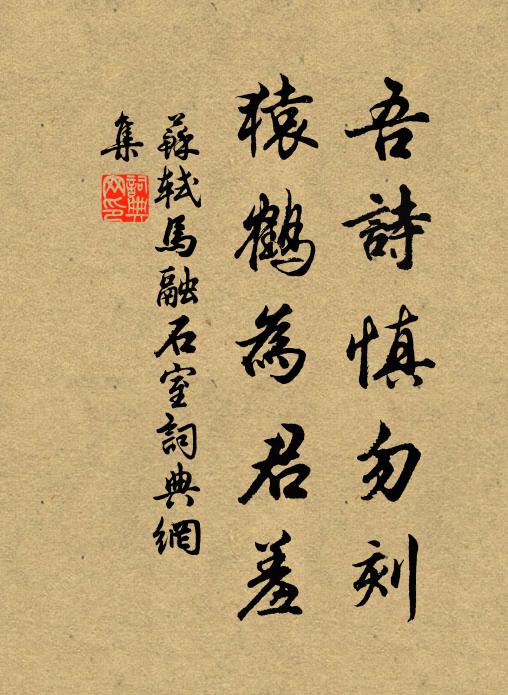 吾詩慎勿刻
猿鶴為君羞
蘇軾馬融石室詞典網
集
詞典
网印